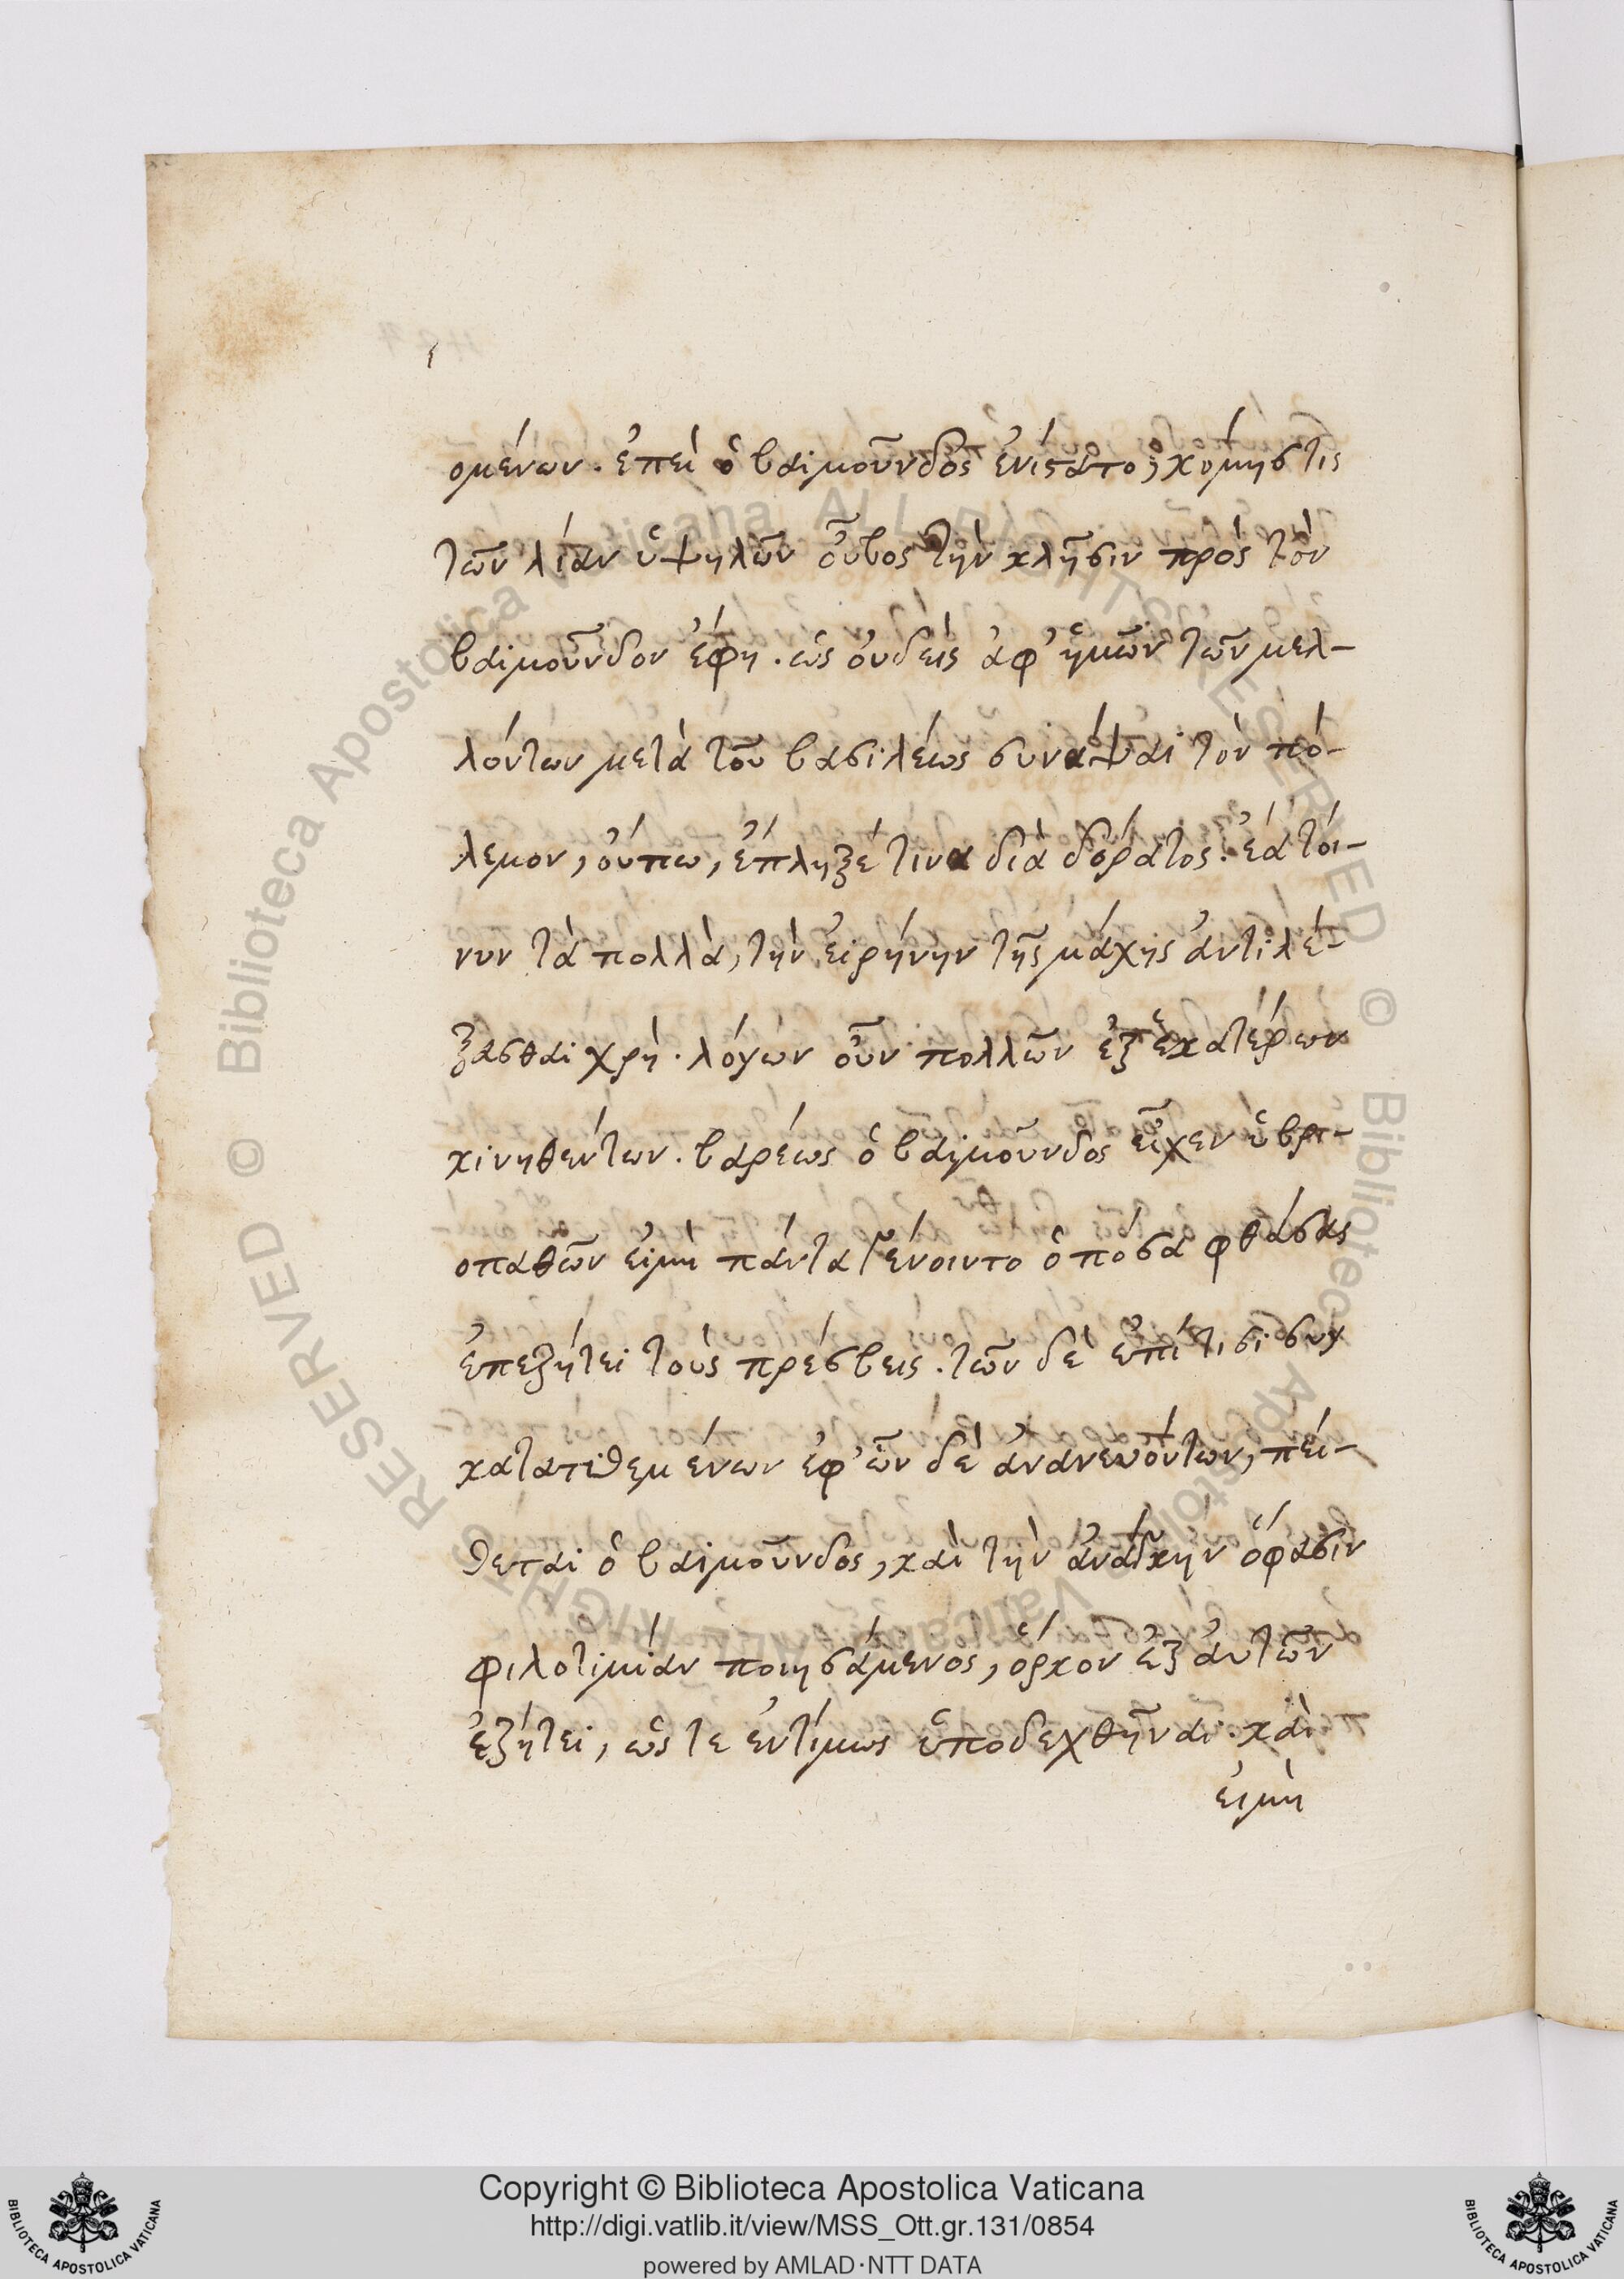 ομένων. ἐπεὶ ὁ βαϊμοῦνδος ἐνίστατο, κόμης τὶς
τῶν λίαν ὑψηλῶν οὖβος τὴν κλῆσιν πρὸς τὸν
βαϊμοῦνδον ἔφη. ὡς οὐδεὶς ἀφ' ἡμῶν τῶν μελ-
λόντων μετὰ τοῦ βασιλέως συνάψαι τὸν πό-
λεμον, οὔπω, ἔπληξέ τινα διὰ δόρατος. ἔα τοί-
νυν τὰ πολλὰ, τὴν εἰρήνην τῆς μάχης ἀντιλέ-
ξασθαι χρή. λόγων οὖν πολλῶν ἐξ ἑκατέρων
κινηθέντων. βαρέως ὁ βαϊμοῦνδος εἶχεν ὑβρι-
οπαθῶν εἰμὴ πάντα γένοιντο ὁπόσα φθάσας
ἐπεζήτει τοὺς πρέσβεις. τῶν δὲ ἐπί τισι συγ
κατατιθεμένων ἐφ' ὧν δὲ ἀνανευόντων, πεί-
θεται ὁ βαϊμοῦνδος, καὶ τὴν ἀνάγκην ὅφασιν
φιλοτιμίαν ποιησάμενος, ὅρκον ἐξ αὐτῶν
ἐζήτει, ὥς τε ἐντίμως ὑποδεχθῆναι. καὶ
εἰμὴ
Copyright © Biblioteca Apostolica Vaticana
http://digi.vatlib.it/view/MSS_Ott.gr.131/0854
powered by AMLAD·NTT DATA
BIBLIOTECA APOSTOLICA VATICANA
BIBLIOTECA APOSTOLICA VATICANA
© Biblioteca Apostolica Vaticana ALL RIGHTS RESERVED
© Biblioteca Apostolica Vaticana ALL RIGHTS RESERVED